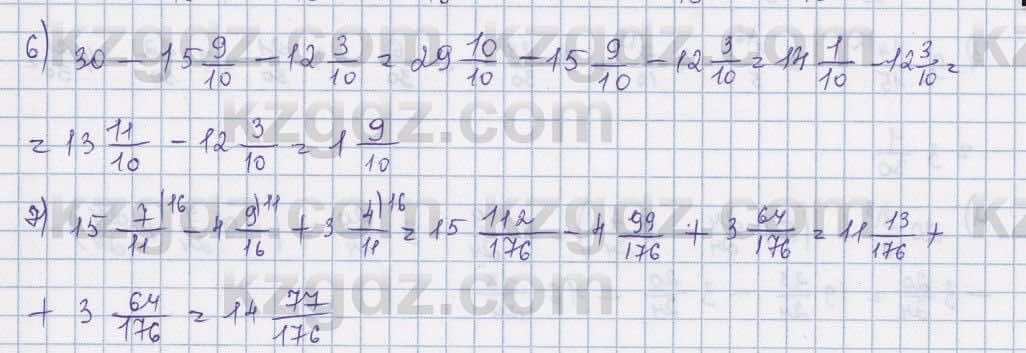 6) 30 - 15 9/10 - 12 3/10 = 29 10/10 - 15 9/10 - 12 3/10 = 14 1/10 - 12 3/10 =
= 13 11/10 - 12 3/10 = 1 9/10
7) 15 7/11 |16 - 4 9/16 |11 + 3 4/11 |16 = 15 112/176 - 4 99/176 + 3 64/176 = 11 13/176 +
+ 3 64/176 = 14 77/176
kzgdz.com